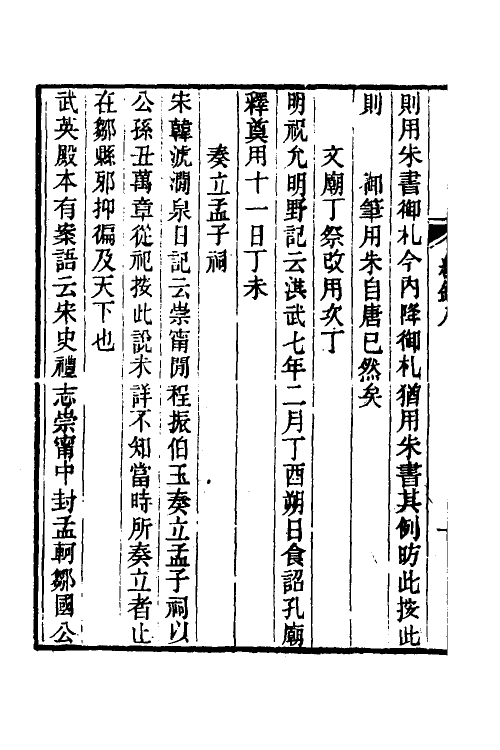 則用朱書御札今內降御札猶用朱書其例昉此按此
則　御筆用朱自唐已然矣
文廟丁祭改用次丁
明祝允明野記云洪武七年二月丁酉朔日食詔孔廟
釋奠用十一日丁未
奏立孟子祠
宋韓淲澗泉日記云崇甯閒程振伯玉奏立孟子祠以
公孫丑萬章從祀按此說未詳不知當時所奏立者止
在鄒縣邪抑徧及天下也
武英殿本有案語云宋史禮志崇甯中封孟軻鄒國公